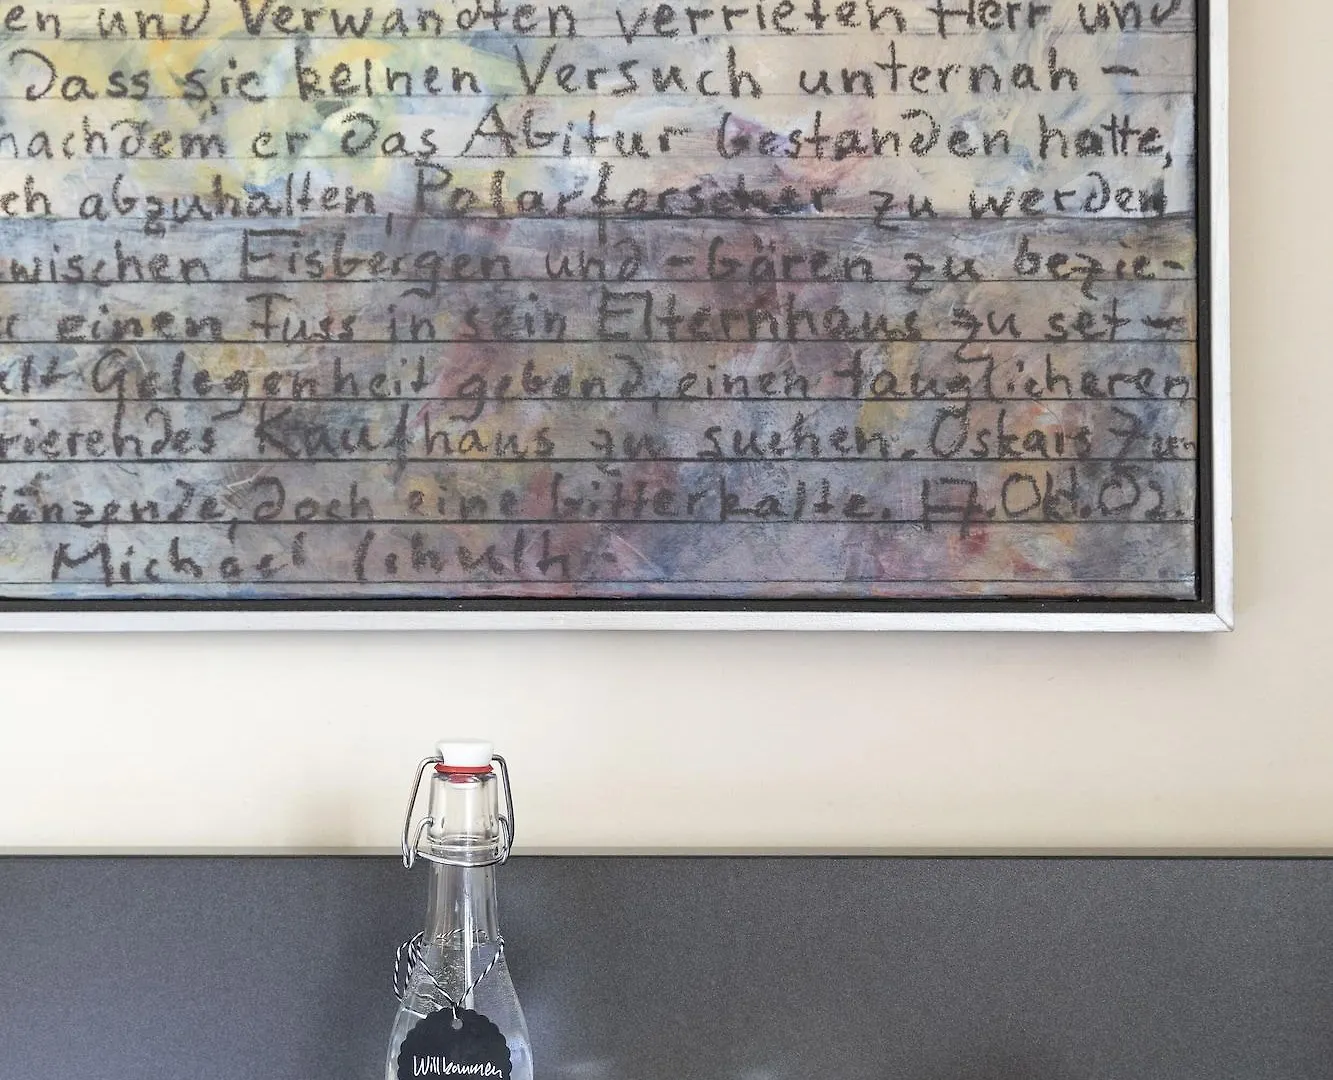 en und Verwandten verrieten Herr und
Dass sie keinen Versuch unternah-
nachdem er das Abitur bestanden hatte,
ch abzuhalten, Polarforscher zu werden
wischen Eisbergen und -Bären zu bezie-
einen Fuss in sein Elternhaus zu set-
Gelegenheit gebend, einen tauglicheren
rierendes Kaufhaus zu suchen. Oskars Zu-
länzende, doch eine bitterkalte. 17. Okt. 02.
Michael
Willkommen